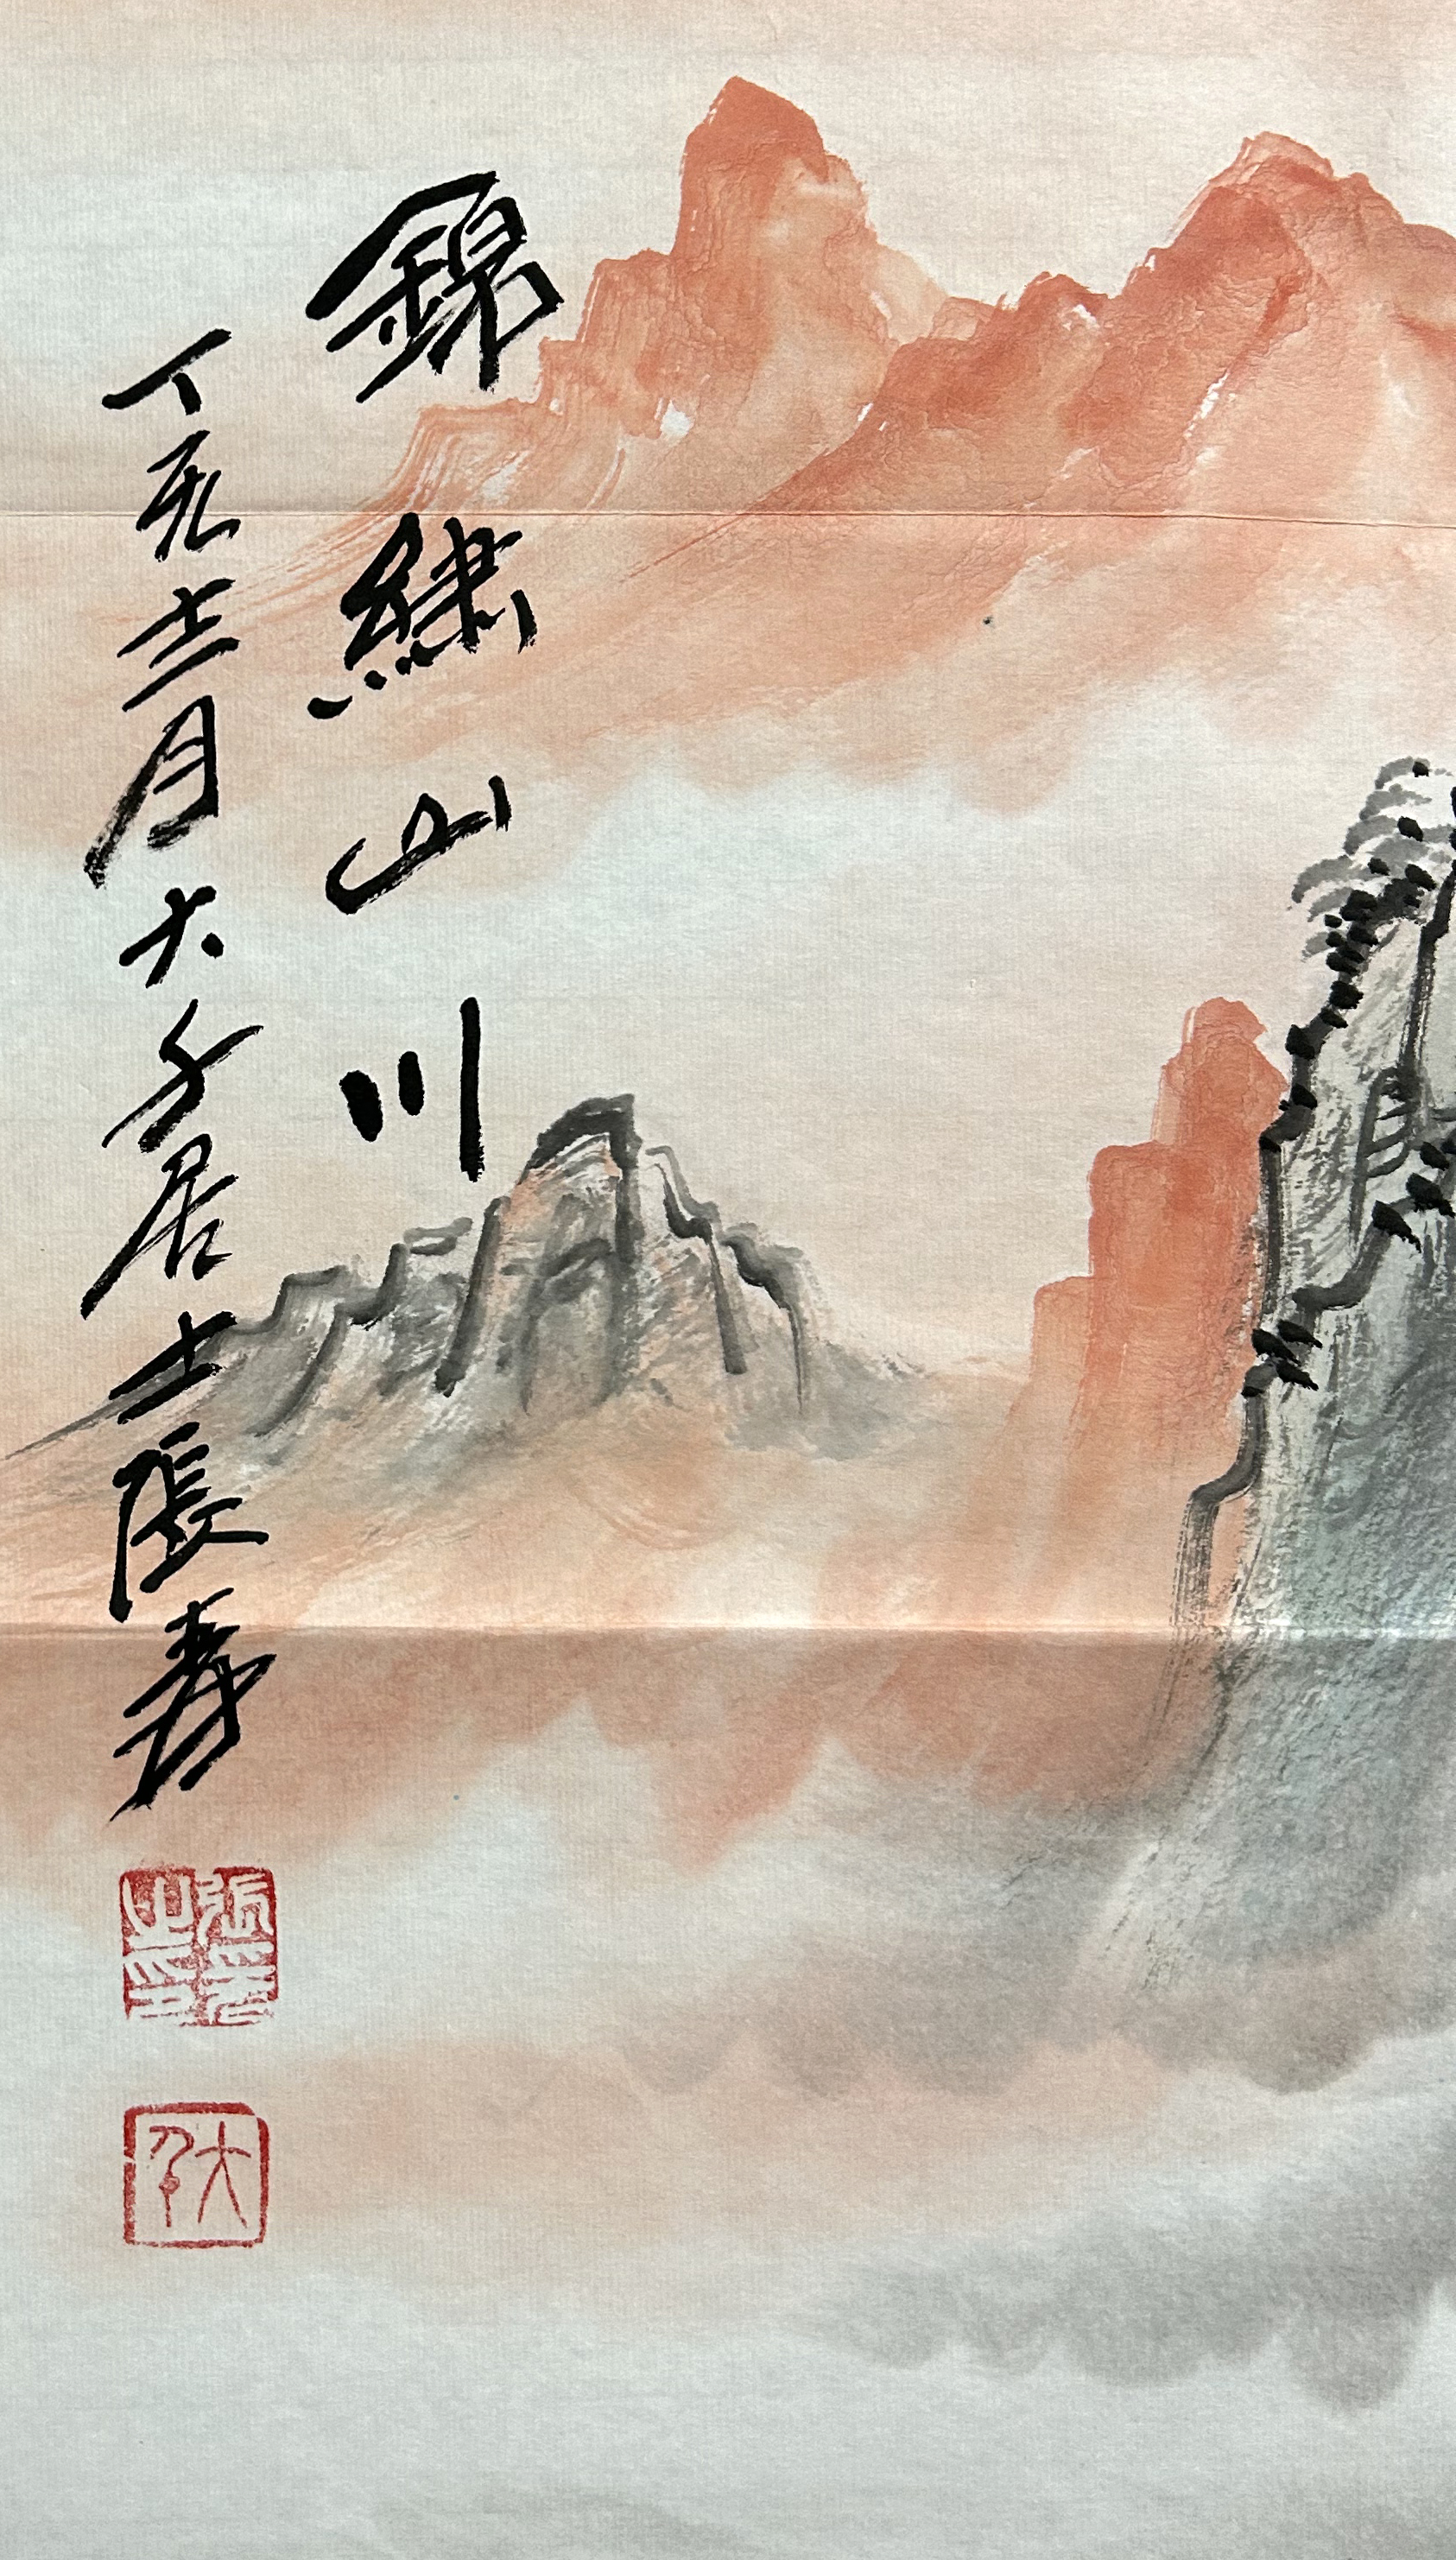 錦繡山川
丁亥十二月大千居士張爰
張爰之印
大千